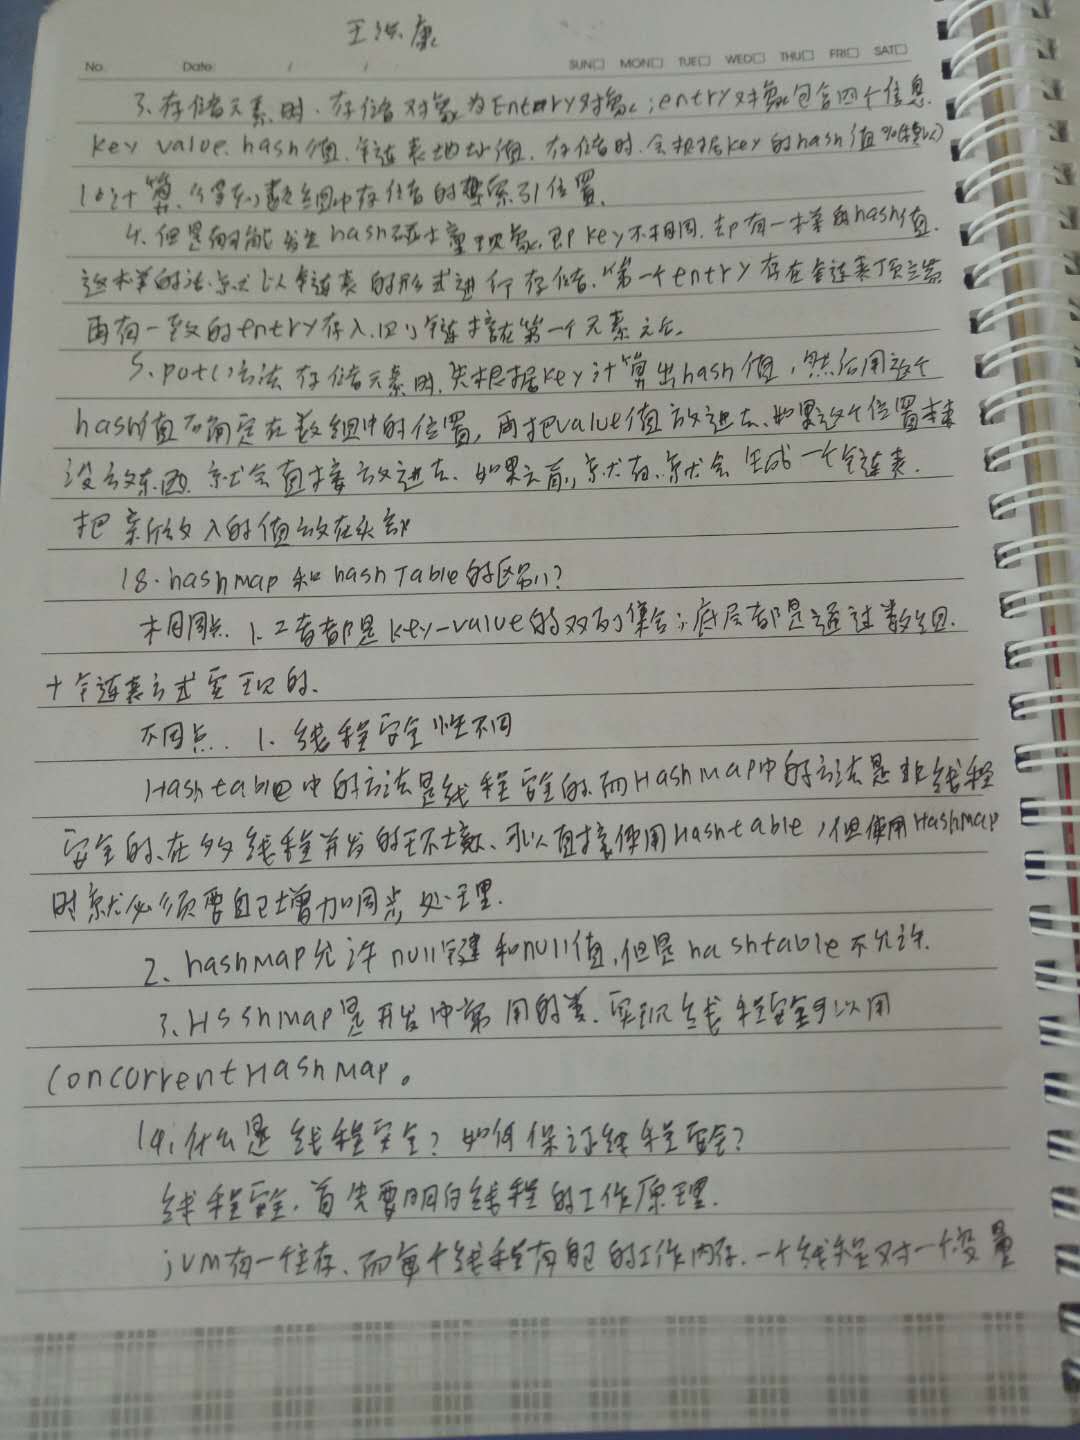 王洪康
No. Date / / SUN□ MON□ TUE□ WED□ THU□ FRI□ SAT□
3.存储元素时.存储对象为Entry对象;entry对象包含四个信息.
key value. hash值.链表地址值.存储时.会根据key的hash值%(默认)
16计算.得到数组中存储的索引位置.
4.但是可能发生hash碰撞现象.即key不相同.却有一样的hash值.
这样的话.就以链表的形式进行存储.第一个entry存在链表顶端
再有一致的entry存入.则链接在第一个元素之后.
5.put()方法存储元素时.先根据key计算出hash值,然后用这个
hash值确定在数组中的位置,再把value值放进去.如果这个位置本来
没放东西.就会直接放进去.如果之前,就有.就会生成一个链表.
把新放入的值放在头部
18.hashmap和hashTable的区别?
相同点.1.二者都是key-value的双列集合;底层都是通过数组.
+链表方式实现的.
不同点.1.线程安全性不同
Hashtable中的方法是线程安全的.而HashMap中的方法是非线程
安全的.在多线程并发的环境.可以直接使用Hashtable,但使用HashMap
时就必须要自己增加同步处理.
2.hashMap允许null键和null值,但是hashtable不允许.
3.HsshMap是开发中常用的类.实现线程安全可以用
ConcurrentHashMap。
19.什么是线程安全?如何保证线程安全?
线程安全.首先要明白线程的工作原理.
jvm有一个主存.而每个线程有自己的工作内存.一个线程对一个变量